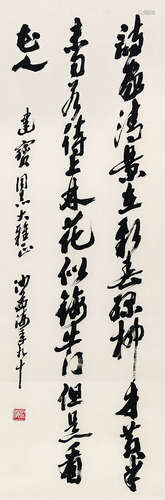 詩家清景在新春綠柳才黃半
未勻若待上林花似錦出門但是看
花人
建寶同志大雅正
沙孟海年九十